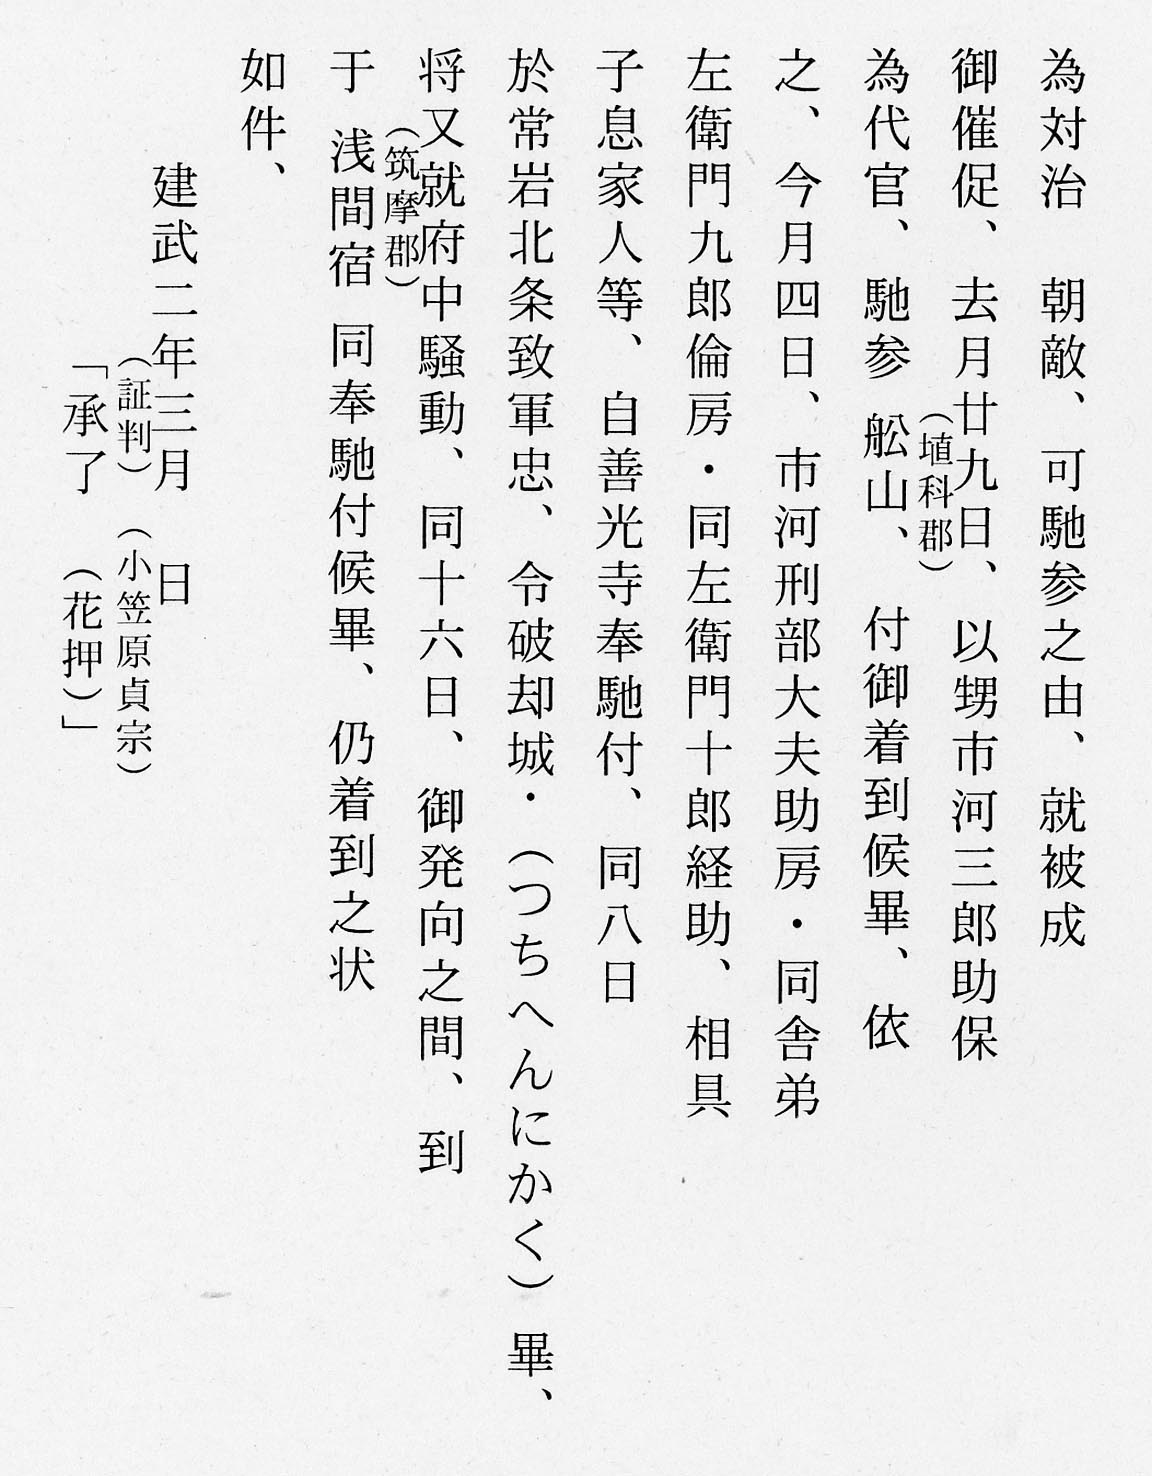 為対治　朝敵、可馳参之由、就被成
御催促、去月廿九日、以甥市河三郎助保
（埴科郡）
為代官、馳参　舩山、　付御着到候畢、依
之、今月四日、市河刑部大夫助房・同舎弟
左衛門九郎倫房・同左衛門十郎経助、相具
子息家人等、自善光寺奉馳付、同八日
於常岩北条致軍忠、令破却城・（つちへんにかく）畢、
将又就府中騒動、同十六日、御発向之間、到
（筑摩郡）
于　浅間宿　同奉馳付候畢、仍着到之状
如件、
建武二年三月　日
（証判）（小笠原貞宗）
「承了　（花押）」